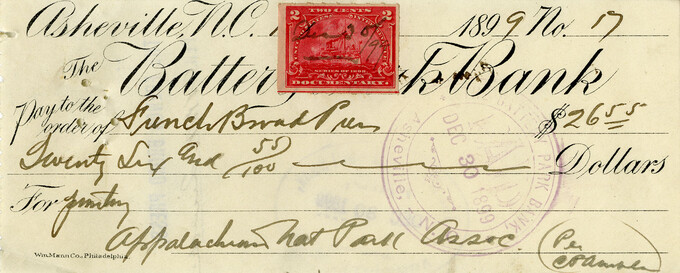 Asheville, N.C. 1899 No. 17
TWO CENTS
2 2
SERIES OF 1898
DOCUMENTARY.
The Battery k Bank
Pay to the order of French Broad Press $26 55
Twenty Six and 55/100 Dollars
BATTERY PARK BANK
PAID
DEC 30 1899
Asheville, N.C.
For printing
Appalachian Nat Park Assoc. Per
C P Ambler
Wm. Mann Co., Philadelphia.